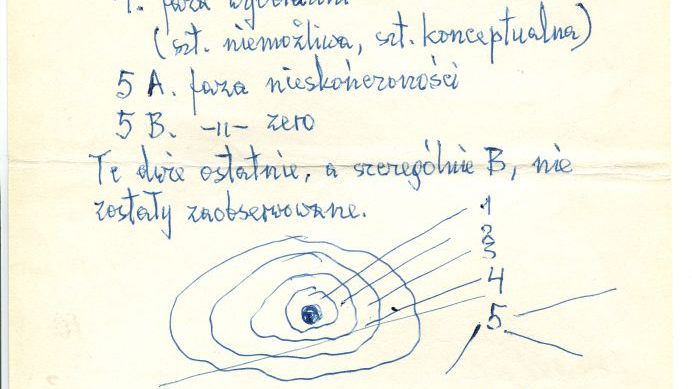 4. faza wyobraźni
(szt. niemożliwa, szt. konceptualna)
5 A. faza nieskończoności
5 B. -"- zero
Te dwie ostatnie, a szczególnie B, nie
zostały zaobserwowane.
1
2
3
4
5